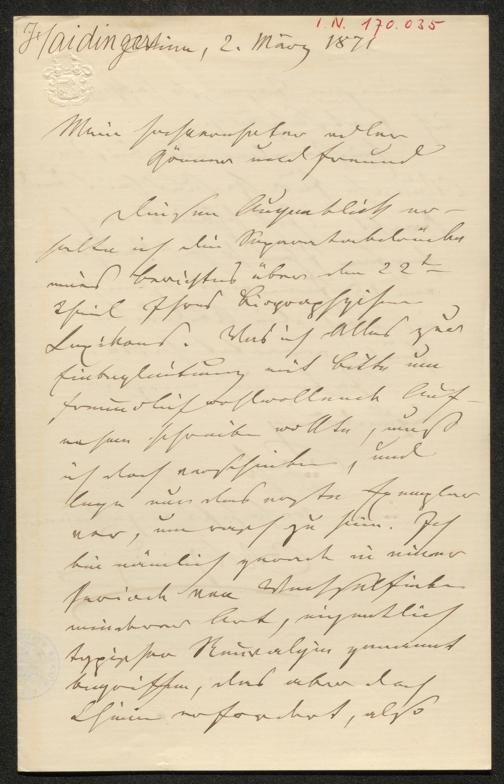 I.N. 170.035
Haidinger Wien, 2. März 1871
Mein hochverehrter edler
Gönner und Freund
Diesen Augenblick er-
halte ich die Separatabdrücke
meines Berichtes über den 22ten
Theil Ihres biographischen
Lexikons. Was ich Alles zur
Einbegleitung mit Bitte um
freundlich wohlwollende Auf-
nahme schreiben wollte, muß
ich doch verschieben, und
lege nur das erste Exemplar
vor, um rasch zu sein. Ich
bin nämlich gerade in einer
Periode von Wechselfieber
minderer Art, eigentlich
typischer Neuralgie genannt
begriffen, das aber doch
Chinin erfordert, also